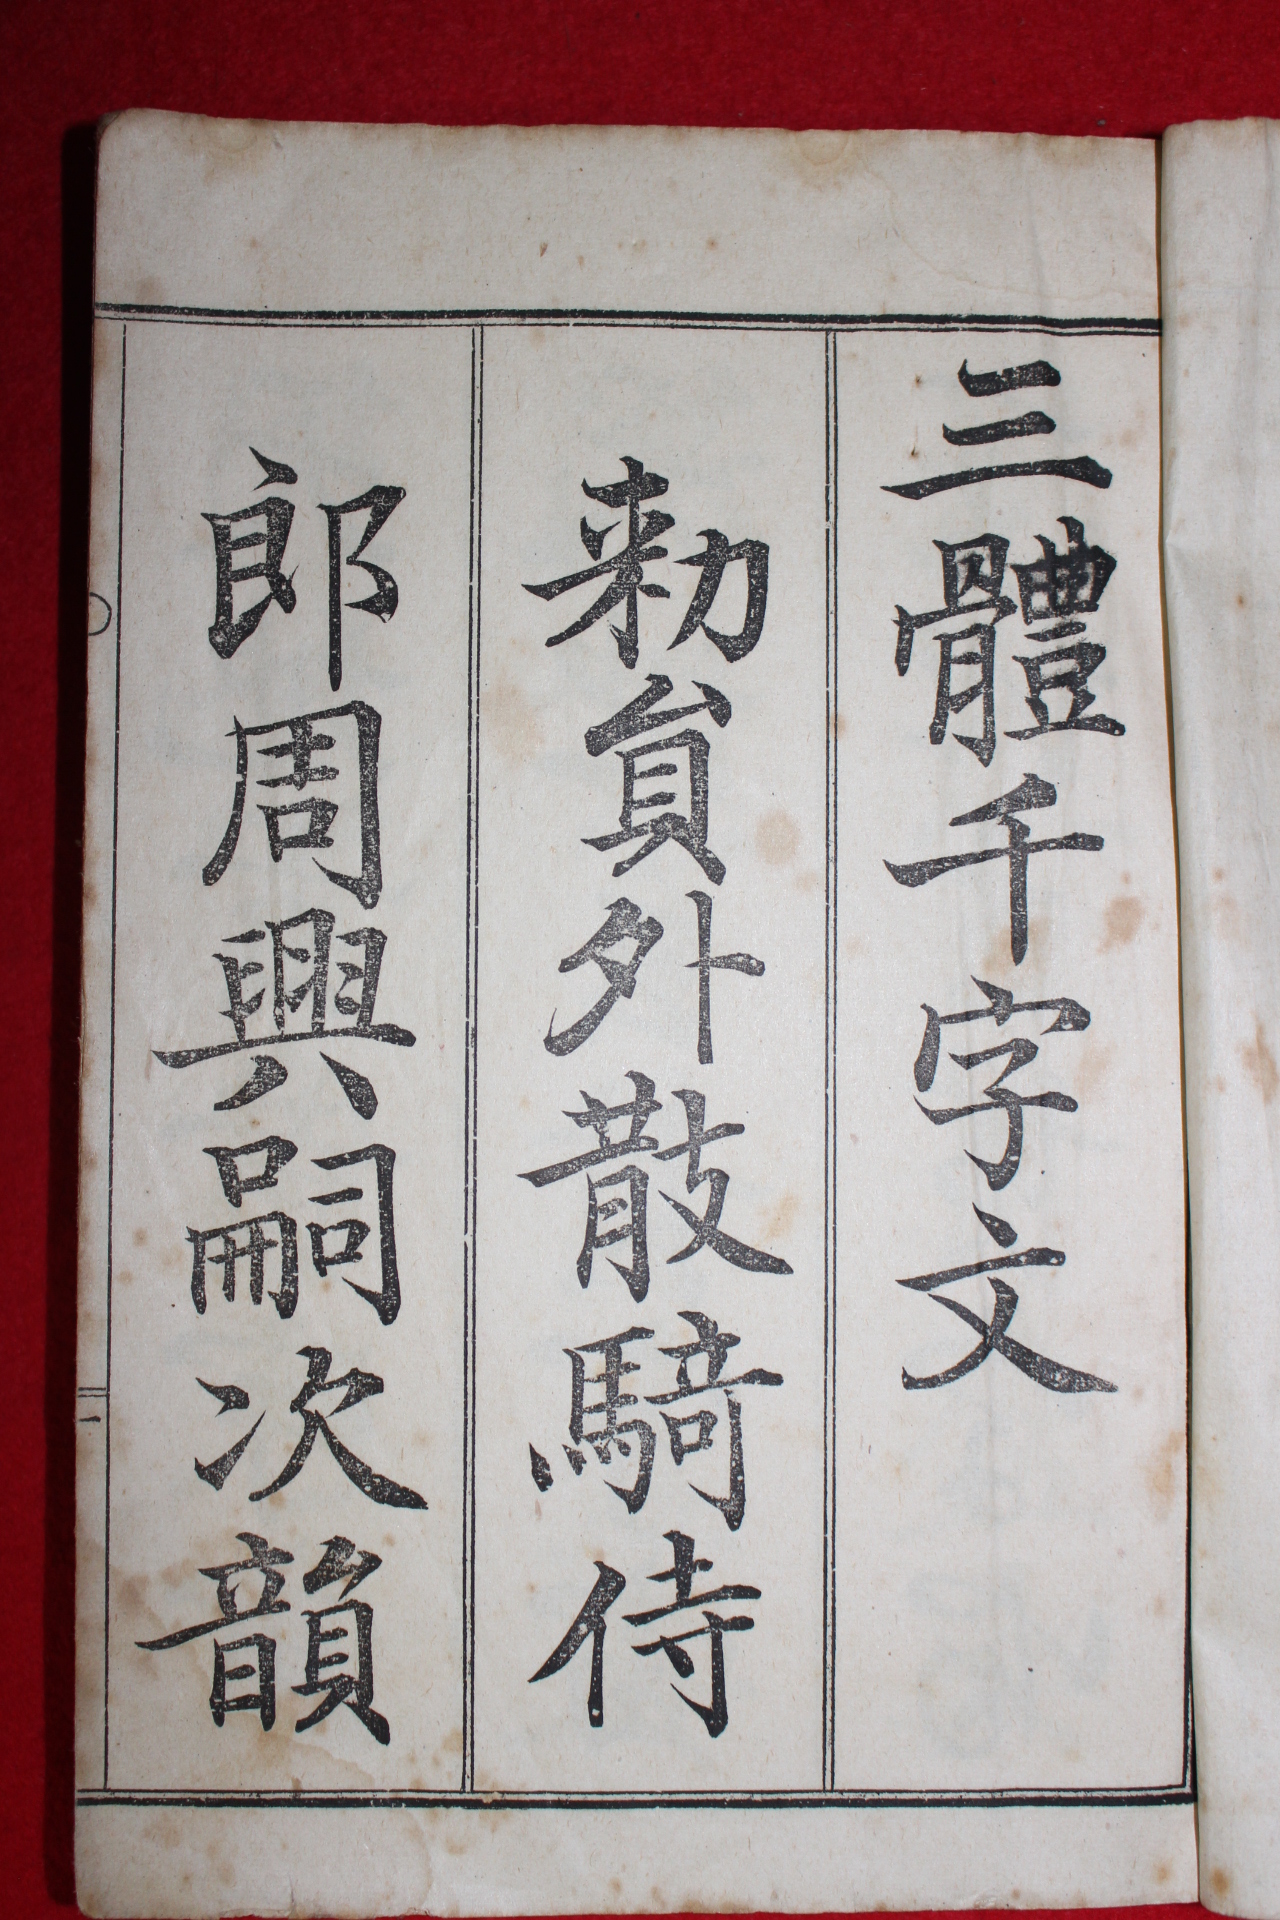 三體千字文
勑貟外散騎侍
郎周興嗣次韻
一